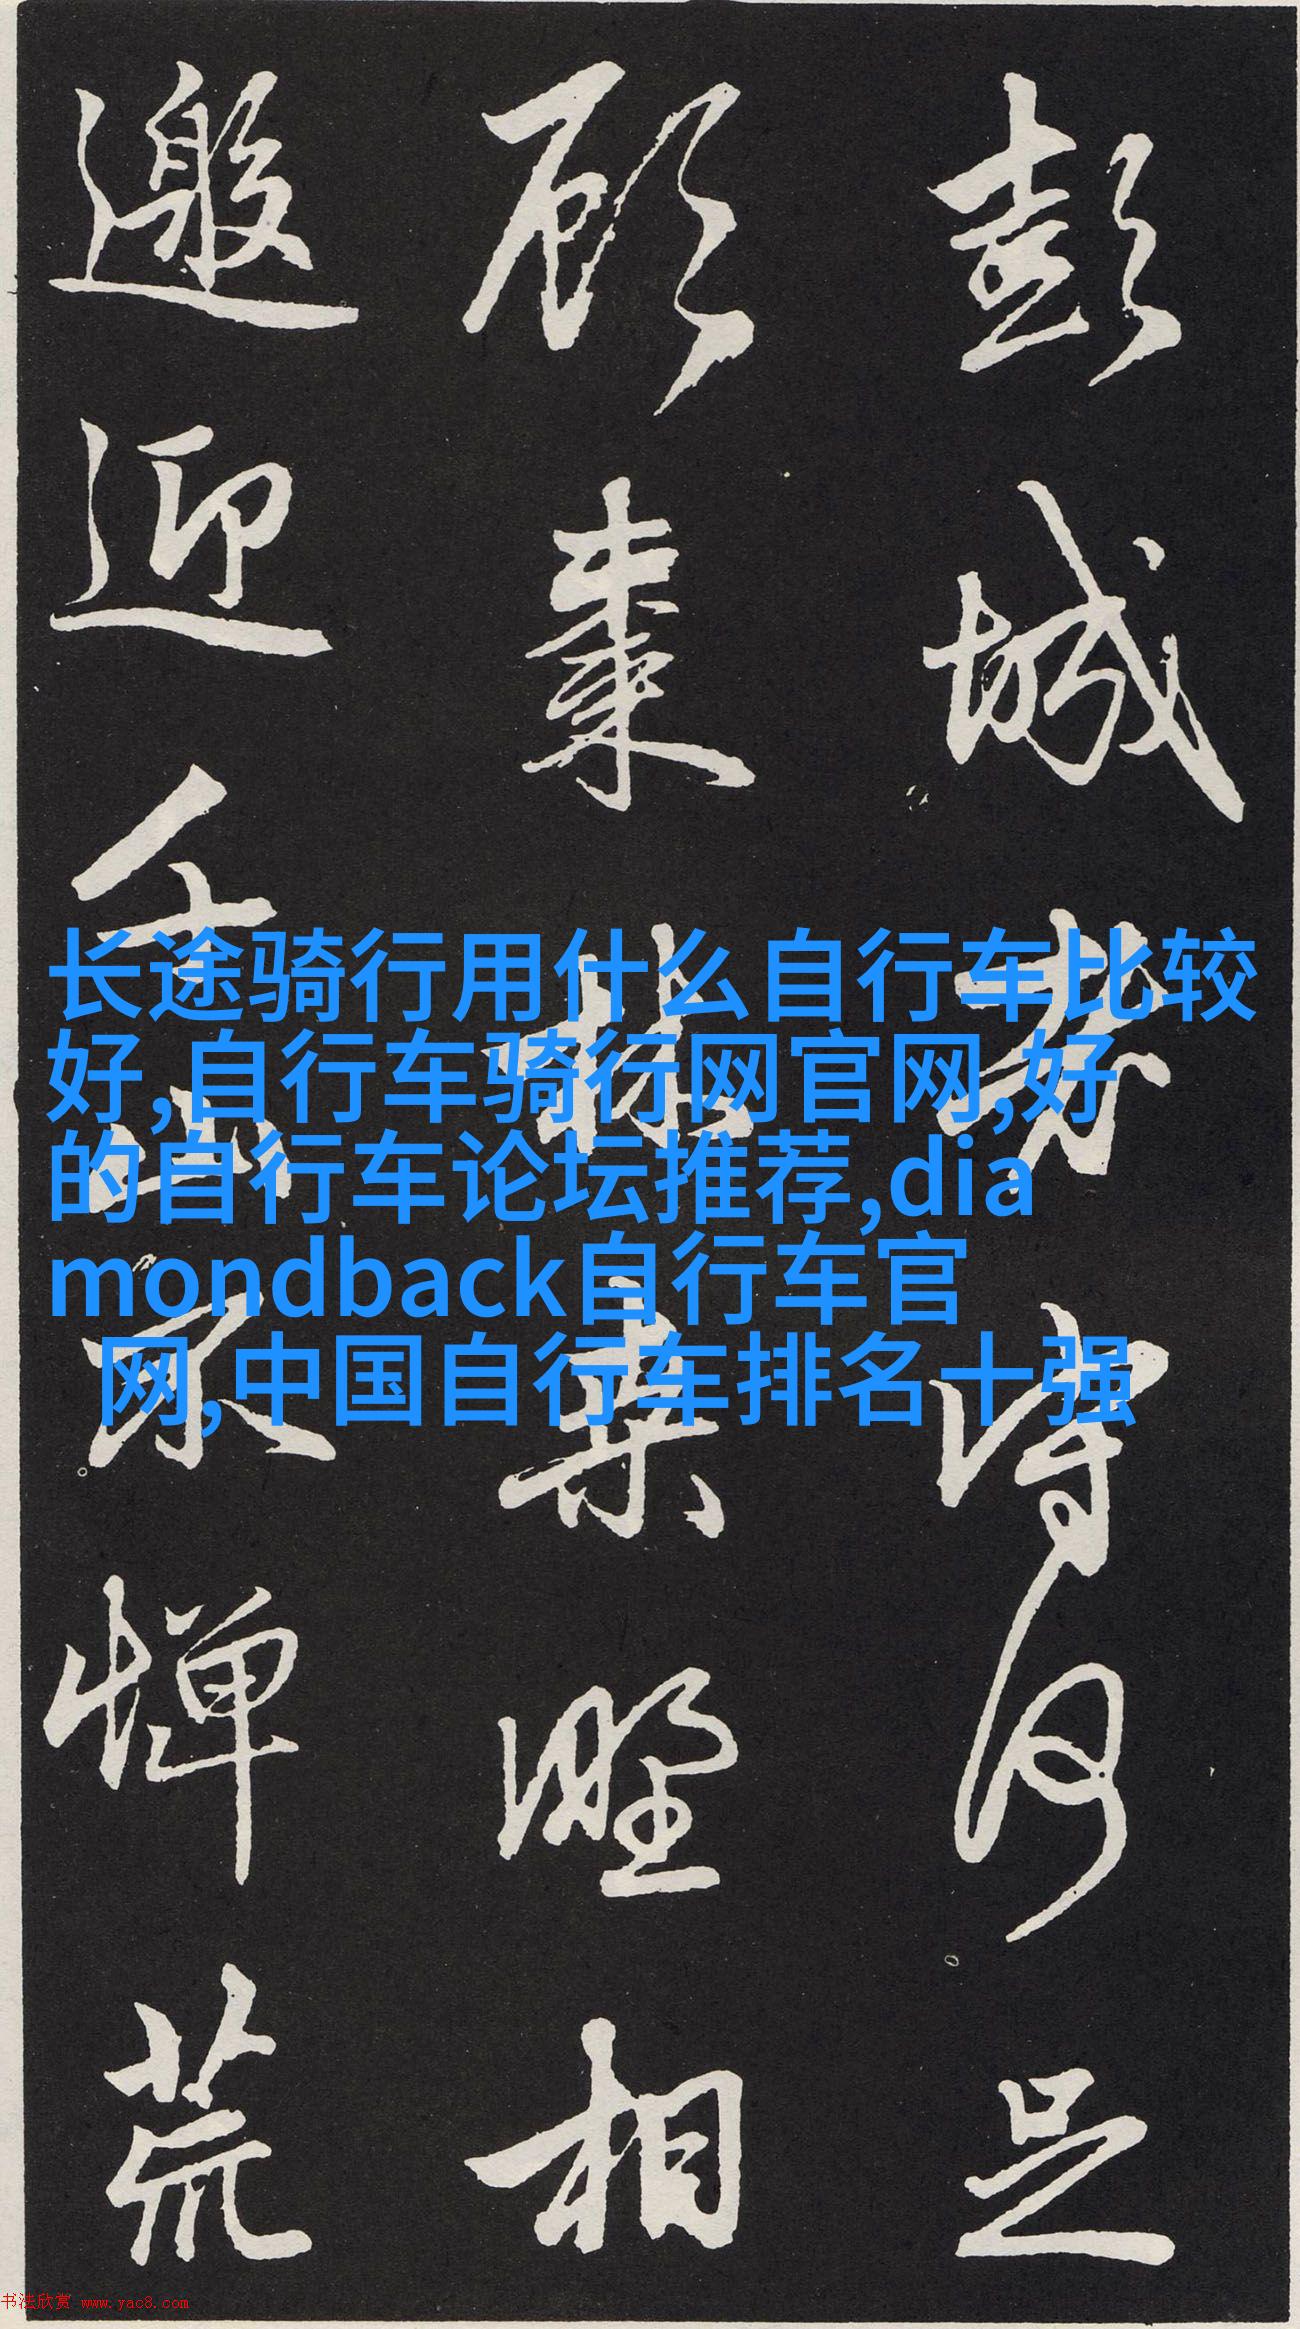 彭城老守何足
顧棗林桑野相
邀迎千山不憚荒
长途骑行用什么自行车比较
好,自行车骑行网官网,好
的自行车论坛推荐,dia
mondback自行车官
网,中国自行车排名十强
书法欣赏 www.yac8.com